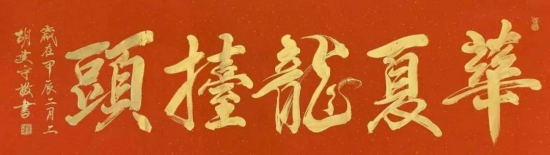 華夏龍擡頭
歲在甲辰二月二
胡 敬書